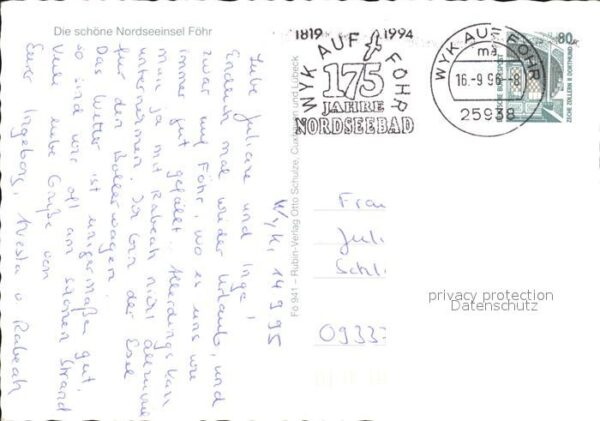 Die schöne Nordseeinsel Föhr
Wyk, 14.9.95
Liebe Juliane und Inge!
Endlich mal wieder Urlaub, und
zwar auf Föhr, wo es uns wie
immer gut gefällt. Allerdings kan
man ja mit Rabeah nicht allzuviel
unternehmen. Ich bin der Esel
für den Bollerwagen.
Das Wetter ist einigermaßen gut,
so sind wir oft am schönen Strand
Viele liebe Grüße von
Eurer Ingeborg, Nesta u Rabeah
Fö 941 – Rubin-Verlag Otto Schulze, Cuxhaven und Lübeck
1819 1994
WYK AUF FÖHR
175
JAHRE
NORDSEEBAD
WYK AUF FÖHR
ma
16.-9.96-8
25938
80
DEUTSCHE BUNDESPOST
ZECHE ZOLLERN II DORTMUND
Frau
Juli
Schl
0933
privacy protection
Datenschutz